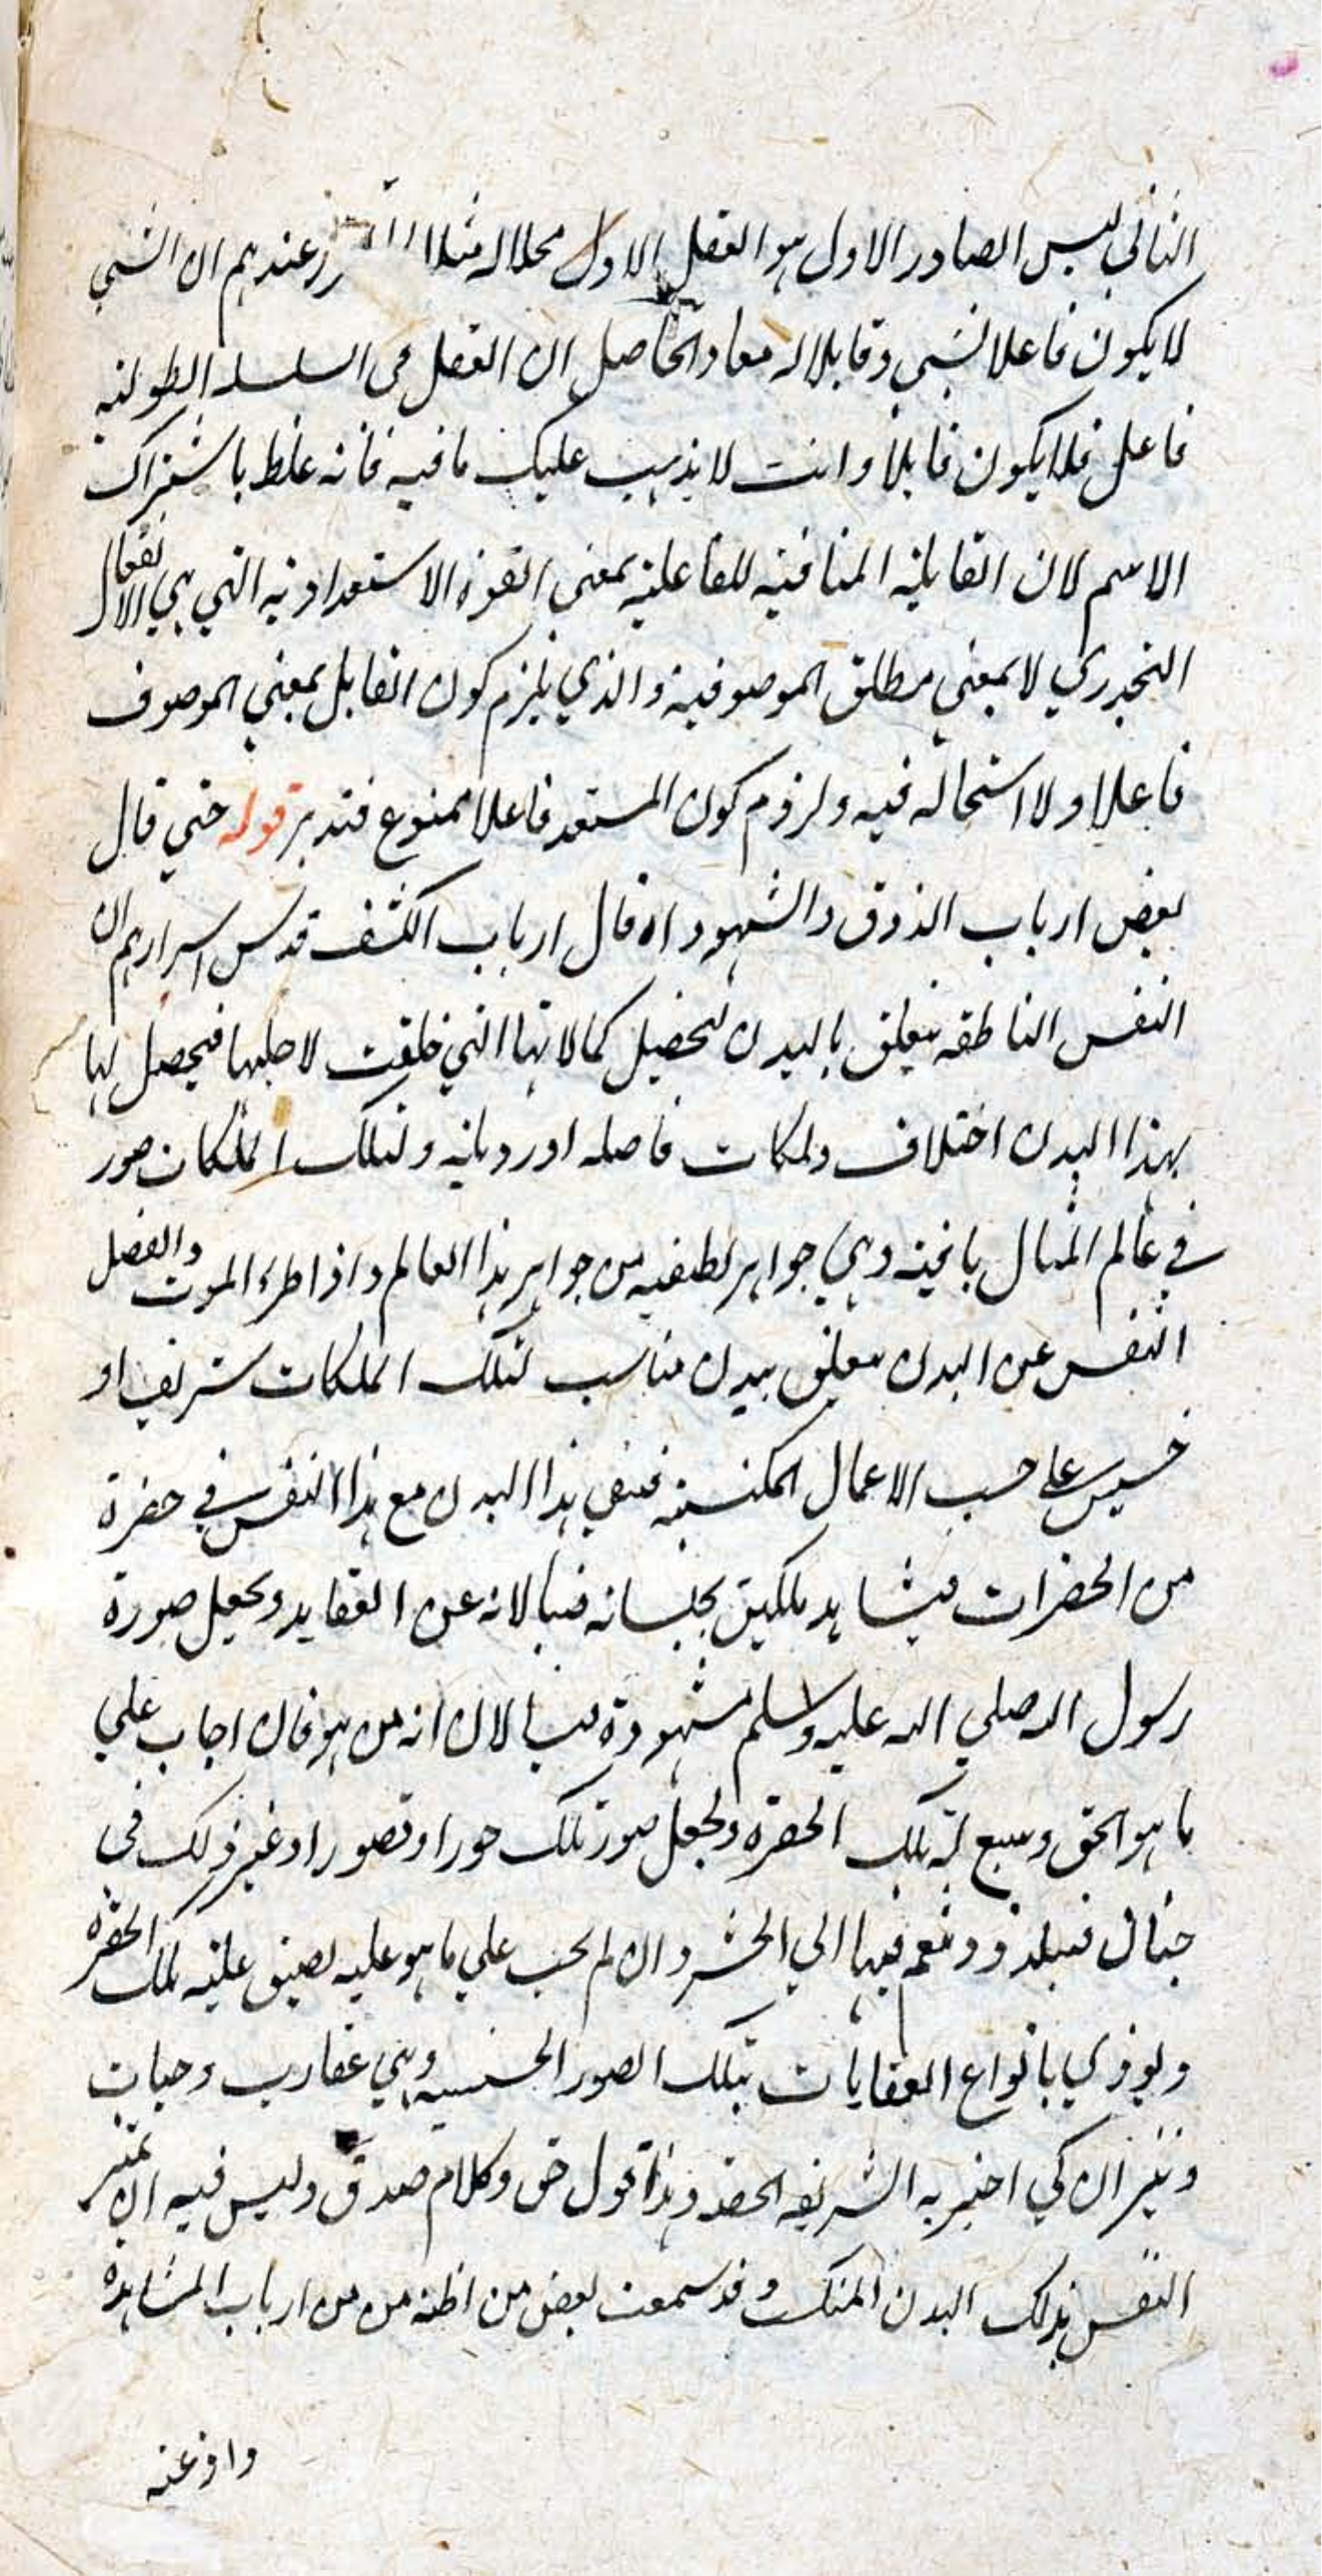 الثاني ليس الصادر الاول هو العقل الاول محلا له مثلا عندهم ان الشي
لا يكون فاعلا لشي وقابلا له معا والحاصل ان العقل في السلسلة الطولية
فاعل فلا يكون قابلا وانت لا يذهب عليك ما فيه فانه غلط باشتراك
الاسم لان القابلية المنافية للفاعلية بمعني القوة الاستعدادية التي هي الانفعال
التجددي لا بمعني مطلق الموصوفية والذي يلزم كون القابل بمعني الموصوف
فاعلا ولا استحالة فيه ولزوم كون المستعد فاعلا ممنوع فتدبر قوله حتي قال
بعض ارباب الذوق والشهود اه قال ارباب الكشف قدس اسرارهم ان
النفس الناطقه يتعلق بالبدن لتحصيل كمالاتها التي خلقت لاجلها فيحصل لها
بهذا البدن اختلاف وملكات فاضله او رديانه ولتلك الملكات صور
في عالم المثال وهي جواهر لطيفه من جواهر هذا العالم واذا طرء الموت وانفصل
النفس عن البدن يتعلق ببدن مناسب لتلك الملكات شريف او
خسيس علي حسب الاعمال المكتسبة فيبقي هذا البدن مع هذا النفس في حضرة
من الحضرات فيشاهد ملكين يجلسانه فيسالانه عن العقايد ويجعل صورة
رسول الله صلي الله عليه وسلم مشهودة فيسالان انه من هو فان اجاب علي
ما هو الحق وسع له تلك الحضرة ويجعل صور تلك حورا وقصورا وغير ذلك في
جنان فيتلذذ وتنعم فيها الي الحشر وان لم يجب علي ما هو عليه يضيق عليه تلك الحضرة
ويوذي بانواع العقابات بتلك الصور الخسيسه وهي عقارب وحيات
ونيران كي اخبر به الشريعه الحقه وهذا قول حق وكلام صدق وليس فيه ان
النفس بذلك البدن وقد سمعت بعض من اظنه من من ارباب المشاهدة